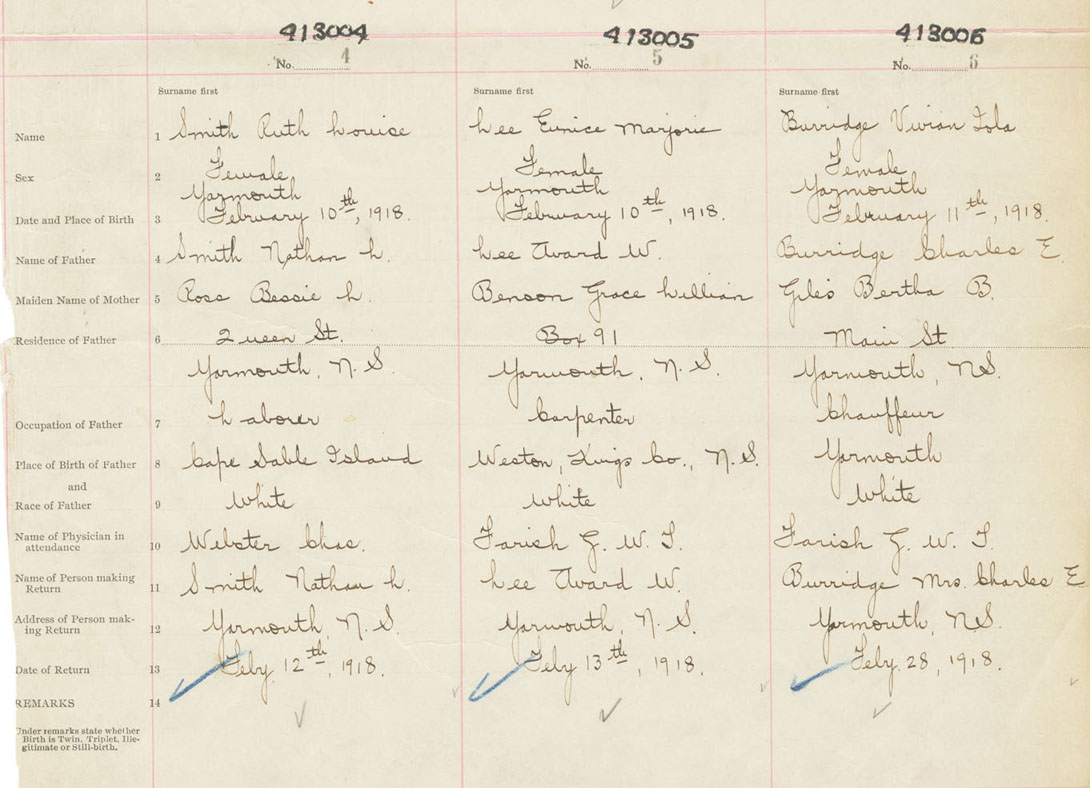 413004 413005 413006
No. 4 No. 5 No. 6
Surname first Surname first Surname first
Name 1 Smith Ruth Louise Lee Eunice Marjorie Burridge Vivian Iola
Sex 2 Female Female Female
Yarmouth Yarmouth Yarmouth
Date and Place of Birth 3 February 10th, 1918. February 10th, 1918. February 11th, 1918.
Name of Father 4 Smith Nathan L. Lee Avard W. Burridge Charles E.
Maiden Name of Mother 5 Ross Bessie L. Benson Grace Lillian Giles Bertha B.
Residence of Father 6 Queen St. Box 91 Main St.
Yarmouth, N.S. Yarmouth, N.S. Yarmouth, NS.
Occupation of Father 7 Laborer Carpenter Chauffeur
Place of Birth of Father 8 Cape Sable Island Weston, Kings Co., N.S. Yarmouth
and
Race of Father 9 White White White
Name of Physician in
attendance 10 Webster Chas. Farish G. W. T. Farish G. W. T.
Name of Person making
Return 11 Smith Nathan L. Lee Avard W. Burridge Mrs. Charles E
Address of Person mak-
ing Return 12 Yarmouth, N.S. Yarmouth, N.S. Yarmouth, NS.
Date of Return 13 Feby. 12th, 1918. Feby 13th, 1918. Feby. 28, 1918.
REMARKS 14
Under remarks state whether
Birth is Twin, Triplet, Ille-
gitimate or Still-birth.